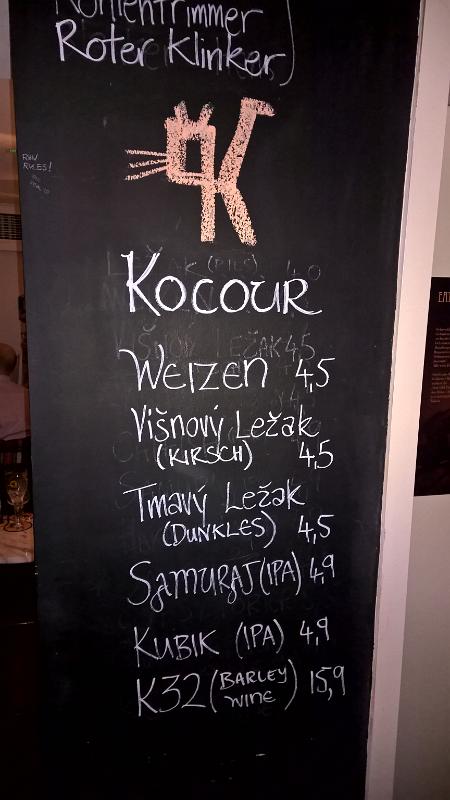 Kohlentrimmer
Roter Klinker
RAW
RULES!
KOCOUR
WEIZEN 4,5
Višnový Ležak
(KIRSCH) 4,5
Tmavý Ležak
(DUNKLES) 4,5
SAMURAJ (IPA) 4,9
KUBIK (IPA) 4,9
K32 (BARLEY WINE) 15,9